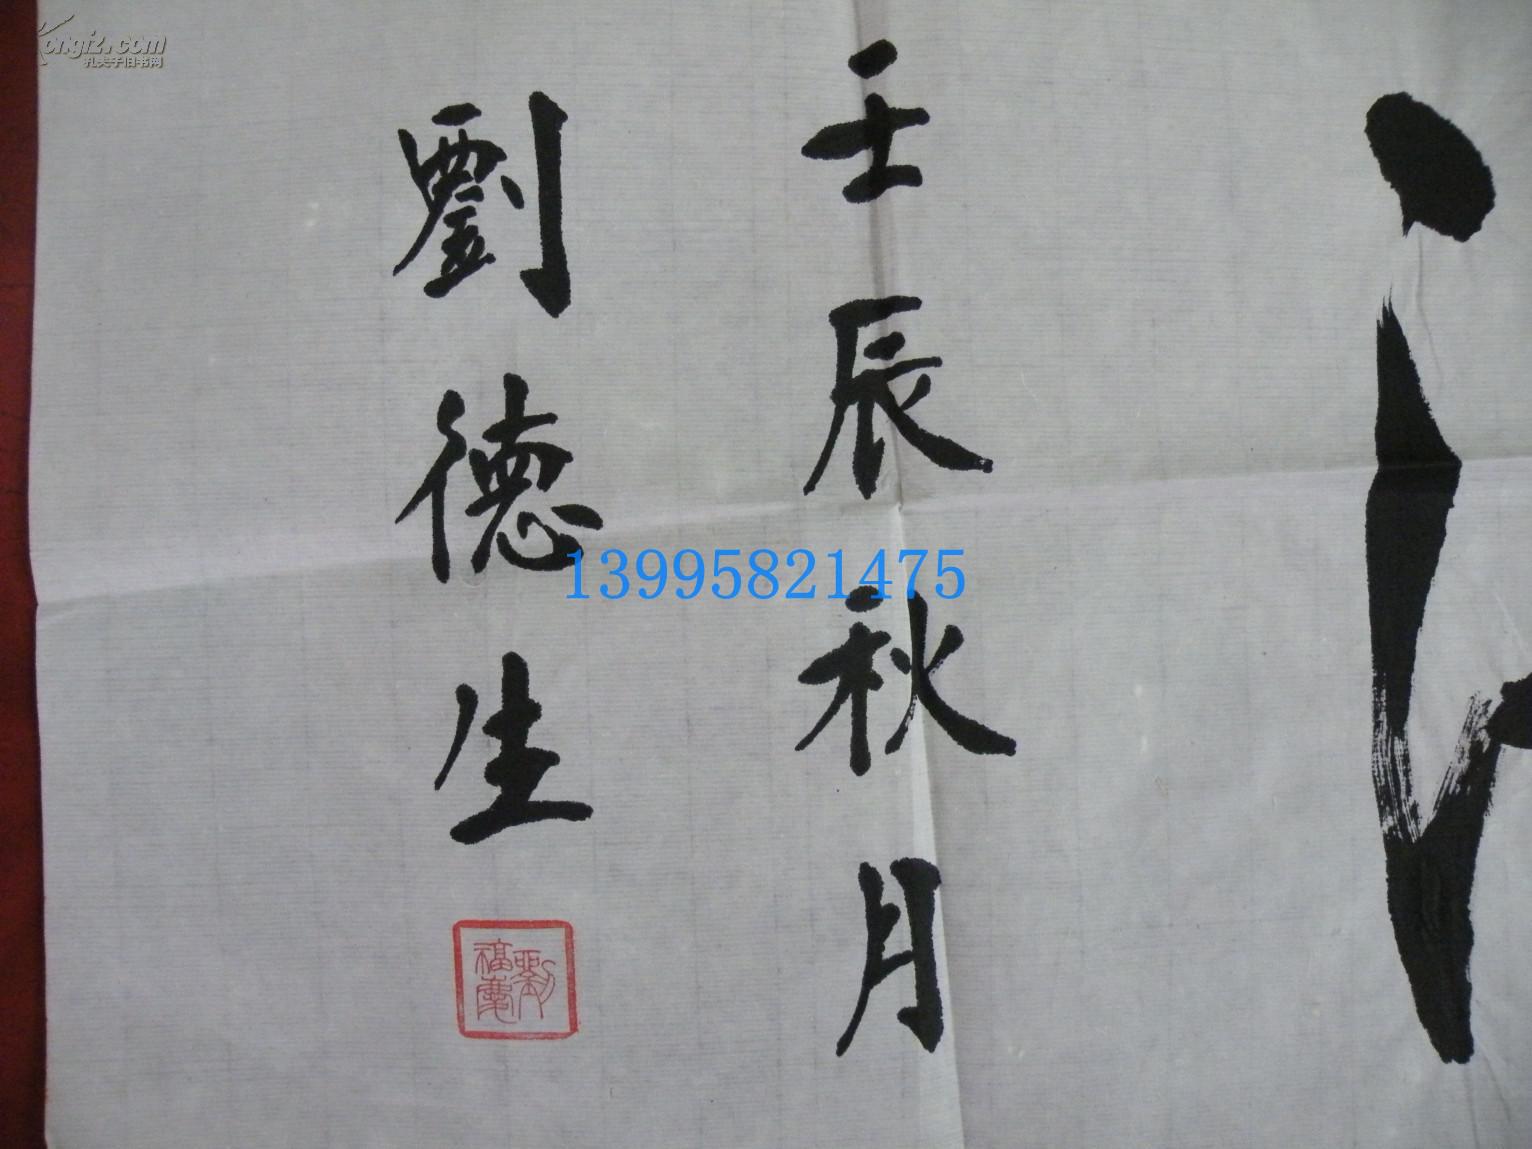 Kongfz.com
孔夫子旧书网
壬辰秋月
劉德生
13995821475
劉福慶